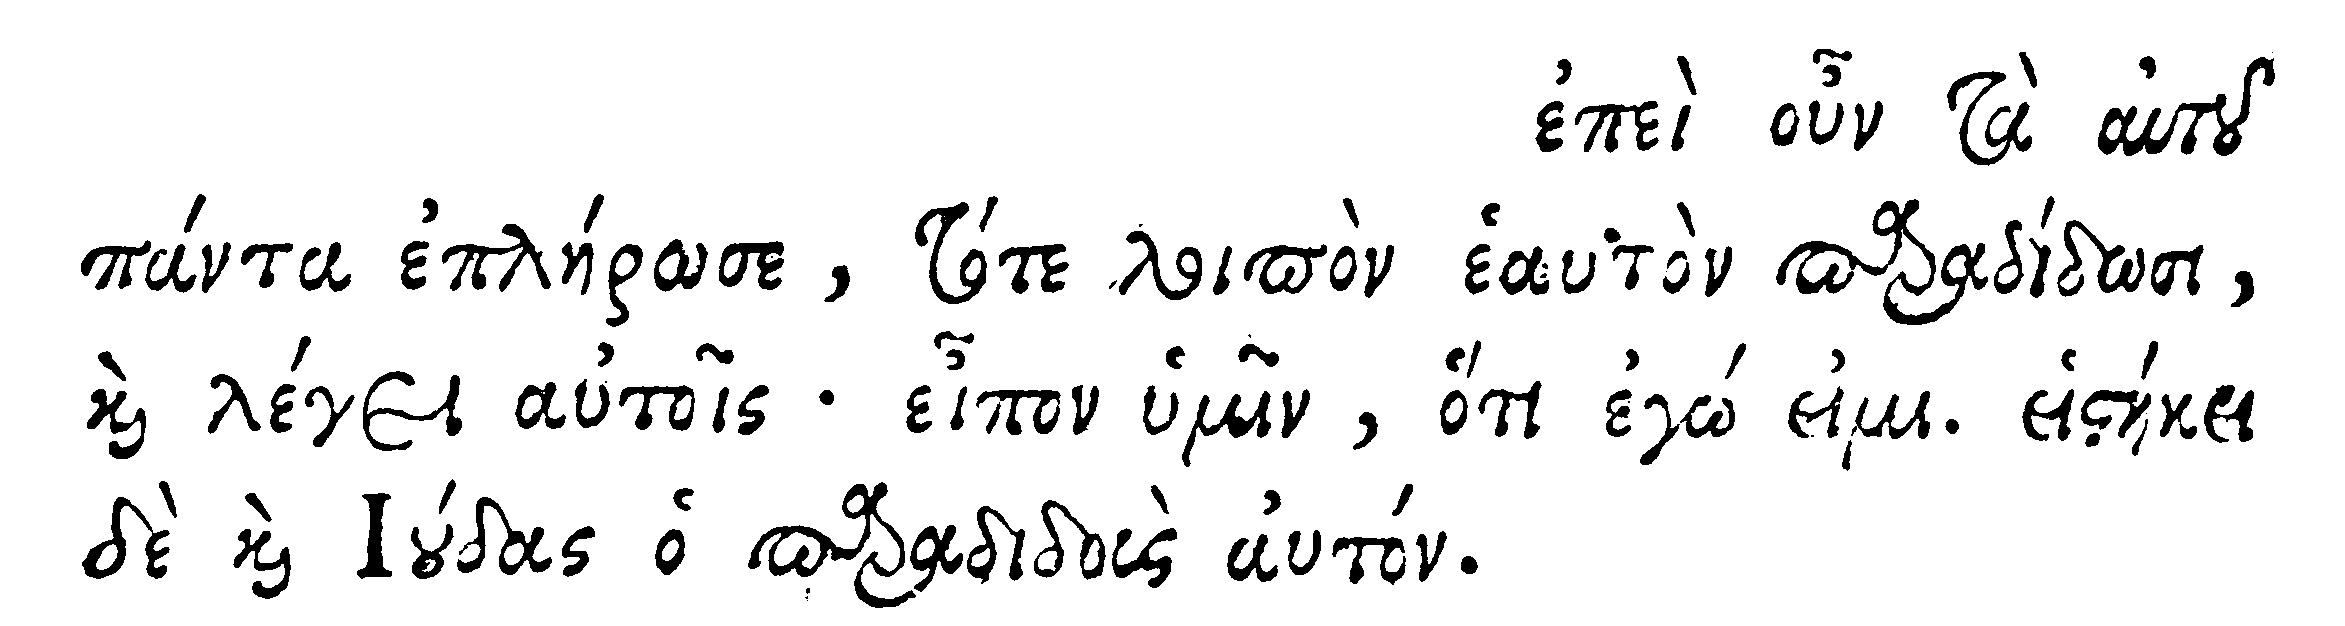 ἐπεὶ οὖν τὰ αὐτȣ͂
πάντα ἐπλήρωσε, τότε λοιπὸν ἑαυτὸν παραδίδωσι,
ϗ̀ λέγει αὐτοῖς · εἶπον ὑμῖν, ὅτι ἐγώ εἰμι. εἱϛήκει
δὲ ϗ̀ Ιȣ́δας ὁ παραδιδοὺς αὐτόν.